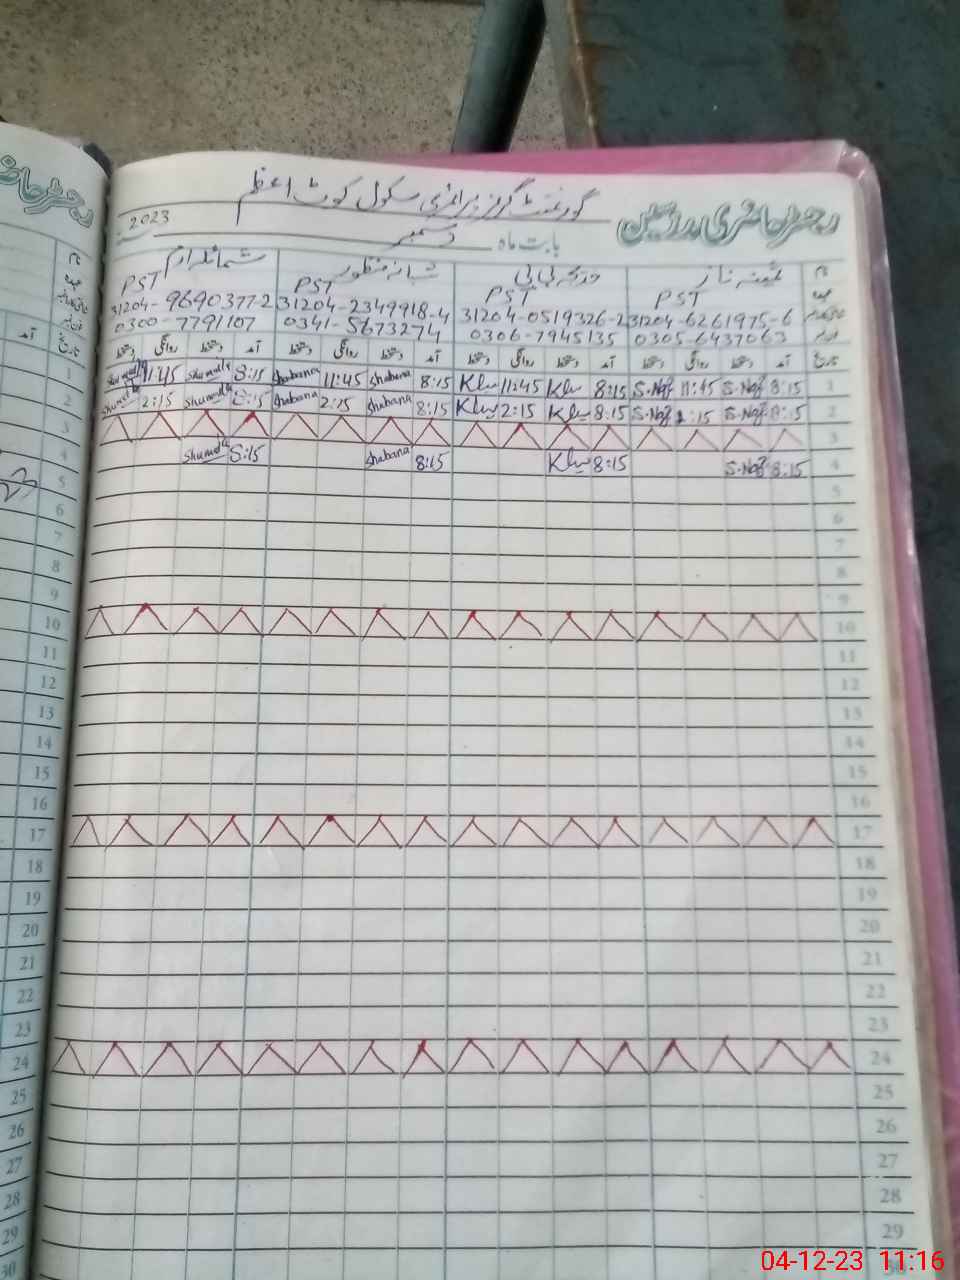 گورنمنٹ گرلز پرائمری سکول کوٹ اعظم
رجسٹر حاضری مدرسین
بابت ماہ دسمبر 2023
نام ثمینہ ناز خدیجہ بی بی شبانہ منظور شمائلہ ارم
عہدہ PST PST PST PST
31204-6261975-6 31204-0519326-2 31204-2349918-4 31204-9690377-2
0305-6437063 0306-7945135 0341-5673274 0300-7791107
تاریخ آمد دستخط روانگی دستخط آمد دستخط روانگی دستخط آمد دستخط روانگی دستخط آمد دستخط روانگی دستخط
1 8:15 S.Naz 11:45 S.Naz 8:15 11:45 8:15 Shabana 11:45 Shabana 8:15 11:45
2 8:15 S.Naz 2:15 S.Naz 8:15 2:15 8:15 Shabana 2:15 Shabana 8:15 2:15
3
4 8:15 S.Naz 8:15 8:15 Shabana 8:15
5
6
7
8
9
10
11
12
13
14
15
16
17
18
19
20
21
22
23
24
25
26
27
28
29
30
رجسٹر حا
نام
آمد
تاریخ
1
2
3
4
5
6
7
8
9
10
11
12
13
14
15
16
17
18
19
20
21
22
23
24
25
26
27
28
29
30
04-12-23 11:16